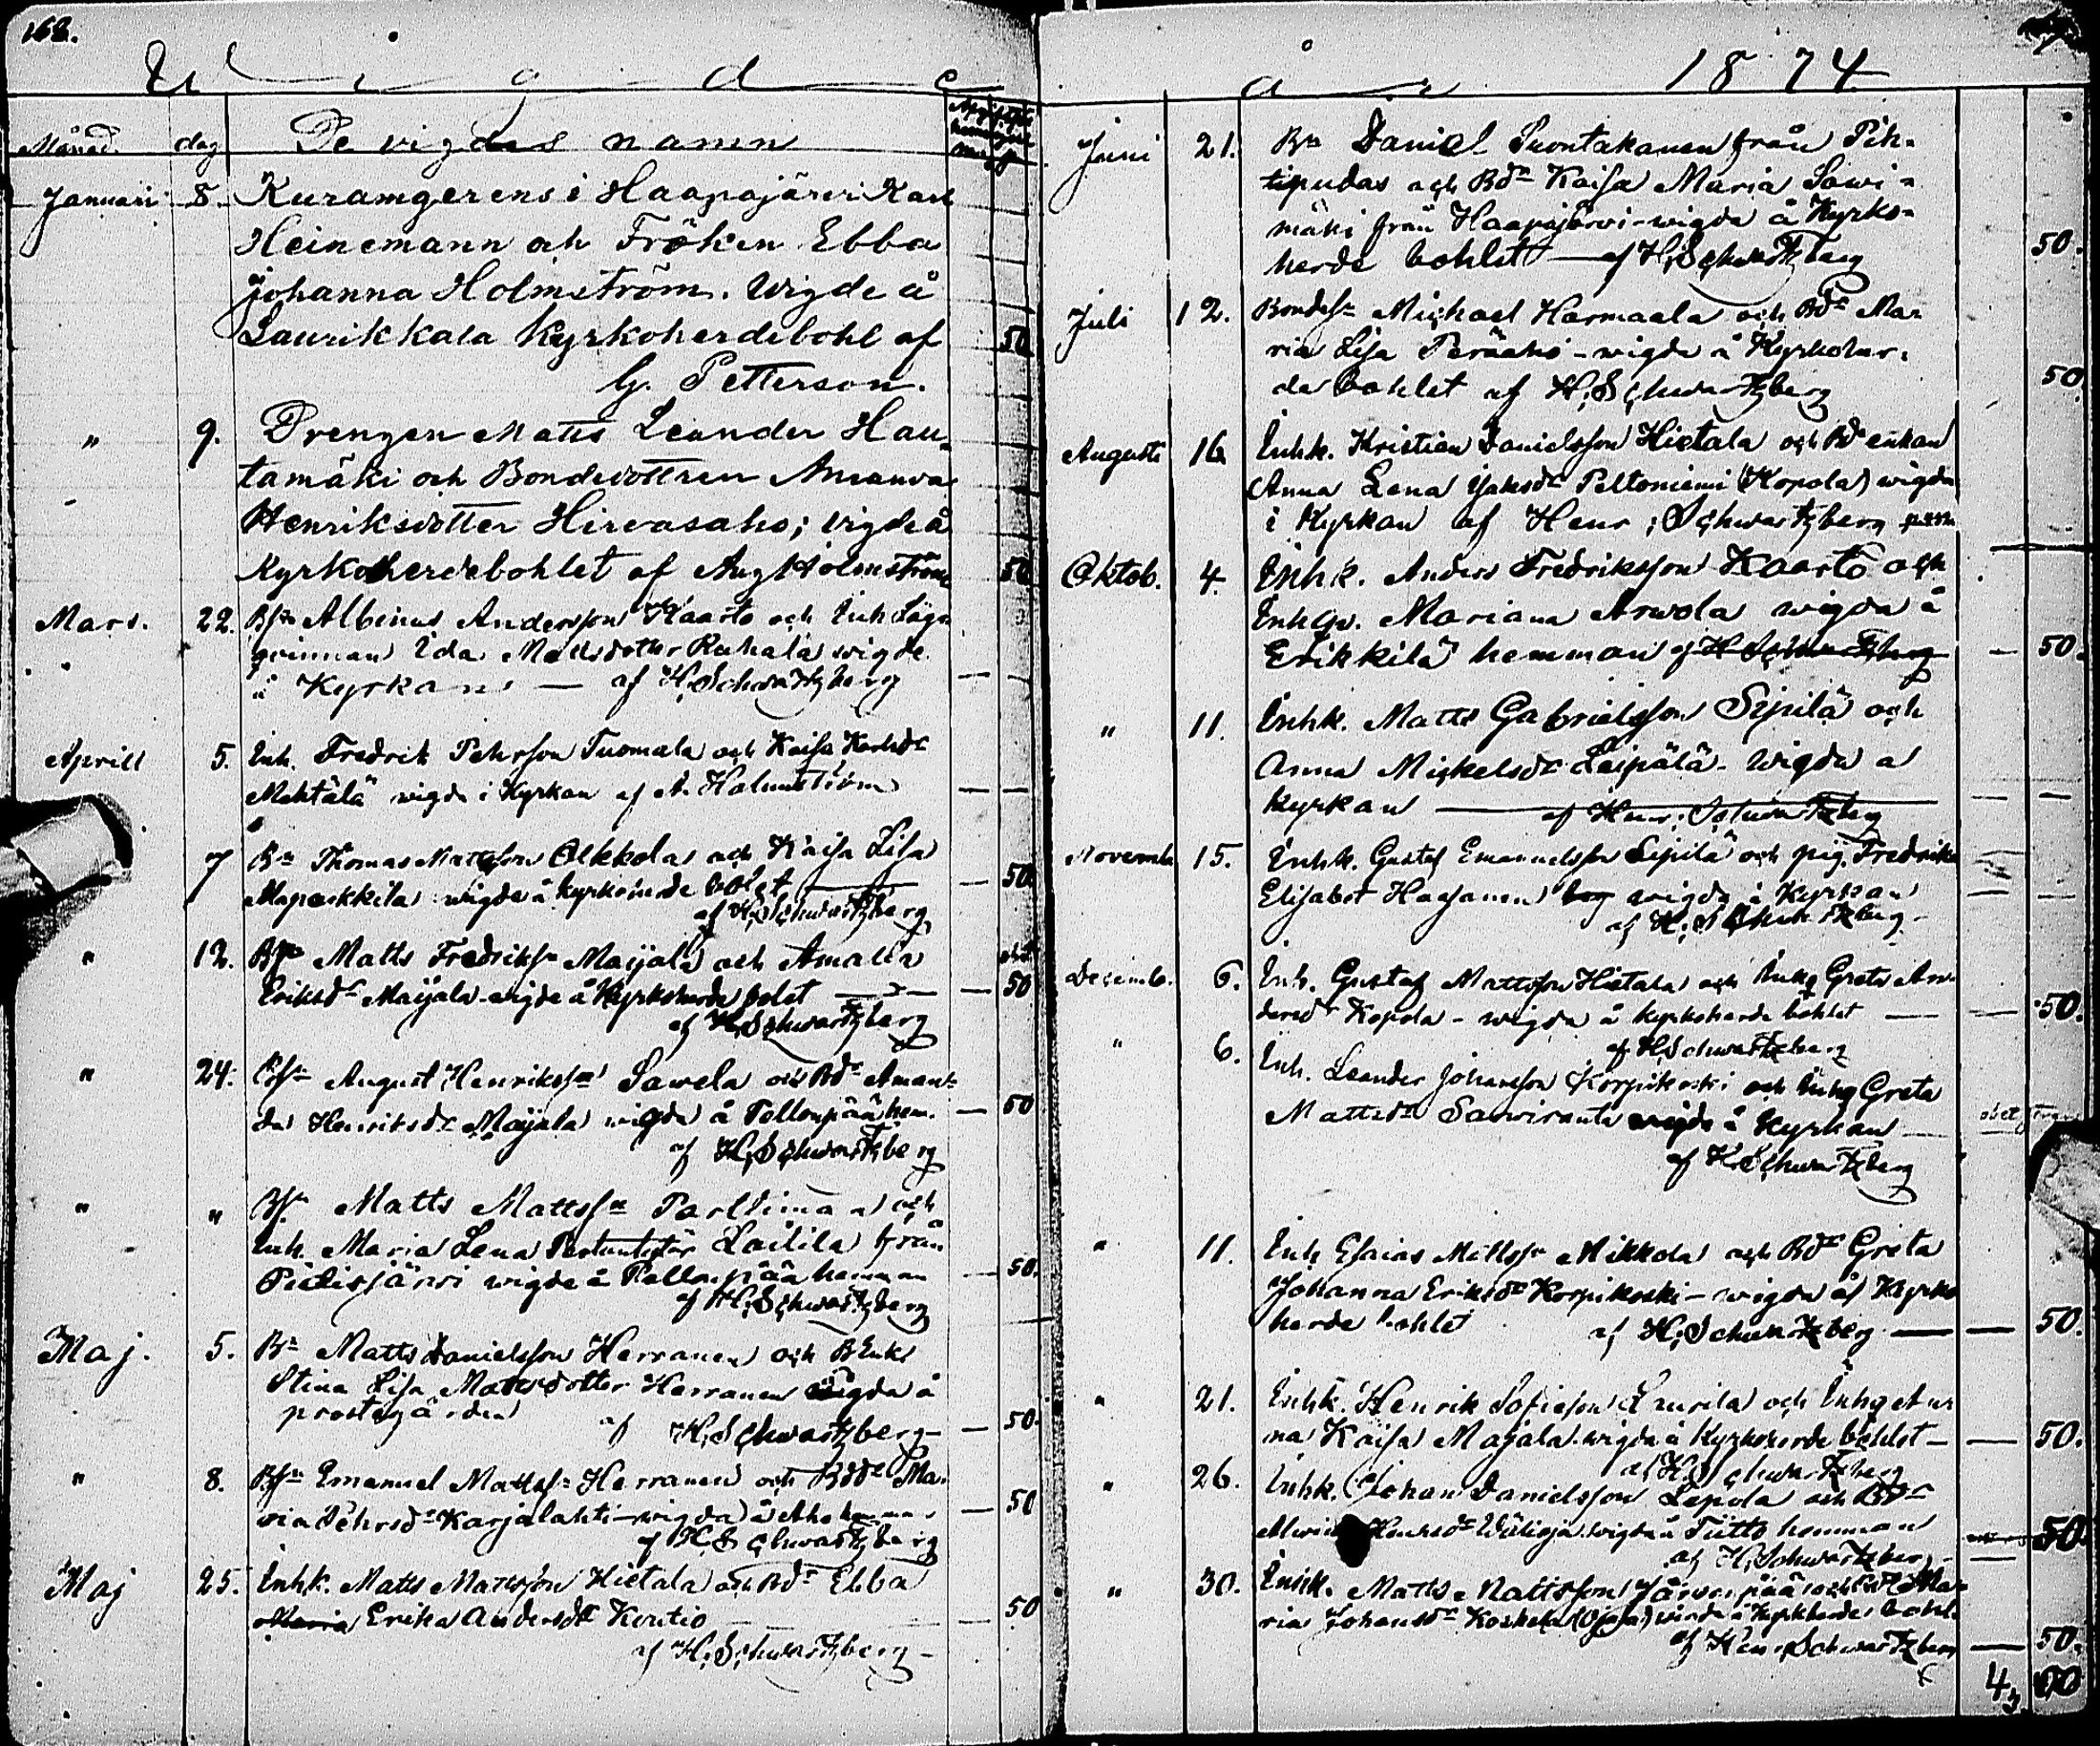 168.
Wigde
Månad. dag De vigdas namn
Januari 8. Kuramgerens i Haapajärvi Karl
Heinemann och Fröken Ebba
Johanna Holmström. Wigde å
Laurikkala Kyrkoherdebohl af 50
G. Petterson.
" 9. Drengen Matts Leander Hau-
tamäki och Bondedottren Amanda
Henriksdotter Hirvasaho; vigde å
Kyrkoherdebohlet af Aug Holmström 50
Mars. 22. Bs:n Albinus Andersson Kaarto och Inh
qvinnan Ida Mattsdotter Ruhala wigde
i Kyrkan — af H. Schwartzberg
Aprill 5. Inh. Fredrik Pehrsson Tuomala och Kaisa Karlsdr
Mehtälä wigde i Kyrkan af A. Holmström
7 Bn Thomas Mattsson Olkkola och Kaisa Lisa
wigde å kyrkoherde bolet 50.
af H. Schwartzberg
" 12. Matts Fredriksn Maijala och Amalia
Eriksdr Maijala wigde å Kyrkoherde bolet — 50
af H. Schwartzberg
" 24. Bsn August Henrikssn Sawela och Bdr Aman-
da Henriksdr Maijala wigda å Pellonpää hem. — 50
af H. Schwartzberg
" " Matts Mattssn och
Inh. Maria Lena Lailila från
Pidisjärwi wigde å Pellonpää hemman — 50.
af H. Schwartzberg
Maj. 5. Bn Matts Danielsson Herranen och BEnk.
Stina Lisa Mattsdotter Herranen wigda å
prostegården
af H. Schwartzberg — 50.
" 8. Bsn Emanuel Mattssn Herranen och Bdr Ma-
ria Pehrsdr Karjalahti wigda å Aho hemman — 50
af H. Schwartzberg
Maj 25. Inhk. Matts Mattsson Hietala och Bdr Ebba
Maria Erika Andersdr Kontio — 50
af H. Schwartzberg
år 1874
Juni 21. Bn Daniel Puontakanen från Pih-
tipudas och Bdr Kaisa Maria Sawi-
mäki från Haapajärwi wigda å Kyrko-
herde bohlet — af H. Schwartzberg 50.
Juli 12. Bondesn Michael Harmaala och Bdr Ma-
ria Lisa Peräaho - wigda å Kyrkoher-
de bohlet af H. Schwartzberg 50.
Augusti 16 Inhk. Kristian Danielsson Hietala och Bdr enkan
Anna Lena Jaksdr Peltoniemi (Kopola) wigda
i Kyrkan af Henr. Schwartzberg
Oktob. 4. Inhk. Anders Fredriksson Kaarto och
Inhqv. Mariana Arwola wigda å
Erikkilä hemman af H. Schwartzberg — 50.
" 11. Inhk. Matts Gabrielsson Sipilä och
Anna Mickelsdr Leipälä - Wigda a
Kyrkan — af Henr. Schwartzberg
Novemb. 15. Inhk. Gustaf Emanuelsson Sipilä och pig. Fredrika
Elisabet wigda i Kyrkan
af H. Schwartzberg
Decemb. 6. Inh. Gustaf Mattsson Hietala och Inhq Greta An-
dersdr Kopola - wigda å kyrkoherde bohlet — 50.
af H. Schwartzberg
" 6. Inh. Leander Johansson Korpikoski och Inhq Greta
Mattsdr Sawiranta wigde i Kyrkan —
af H. Schwartzberg
" 11. Inh. Esaias Mattssn Mikkola och Bdr Greta
Johanna Eriksdr Korpikoski - wigda å Kyrko
herde bohlet af H. Schwartzberg — 50.
" 21. Inhk. Henrik Sofieson Laurila och Inhq An
na Kaisa Majala wigda å Kyrkoherde bohlet — 50.
af H. Schwartzberg
" 26. Inhk. Johan Danielsson Lepola och Bdr
wigda å Tiitto hemman 50.
af H. Schwartzberg
" 30. Inhk. Matts Mattsson Järwenpää och Bdr Ma-
ria Johansdr Koskela (Ojala) wigda å Kyrkherde bohl.
af Henr. Schwartzberg — 50.
4, 00